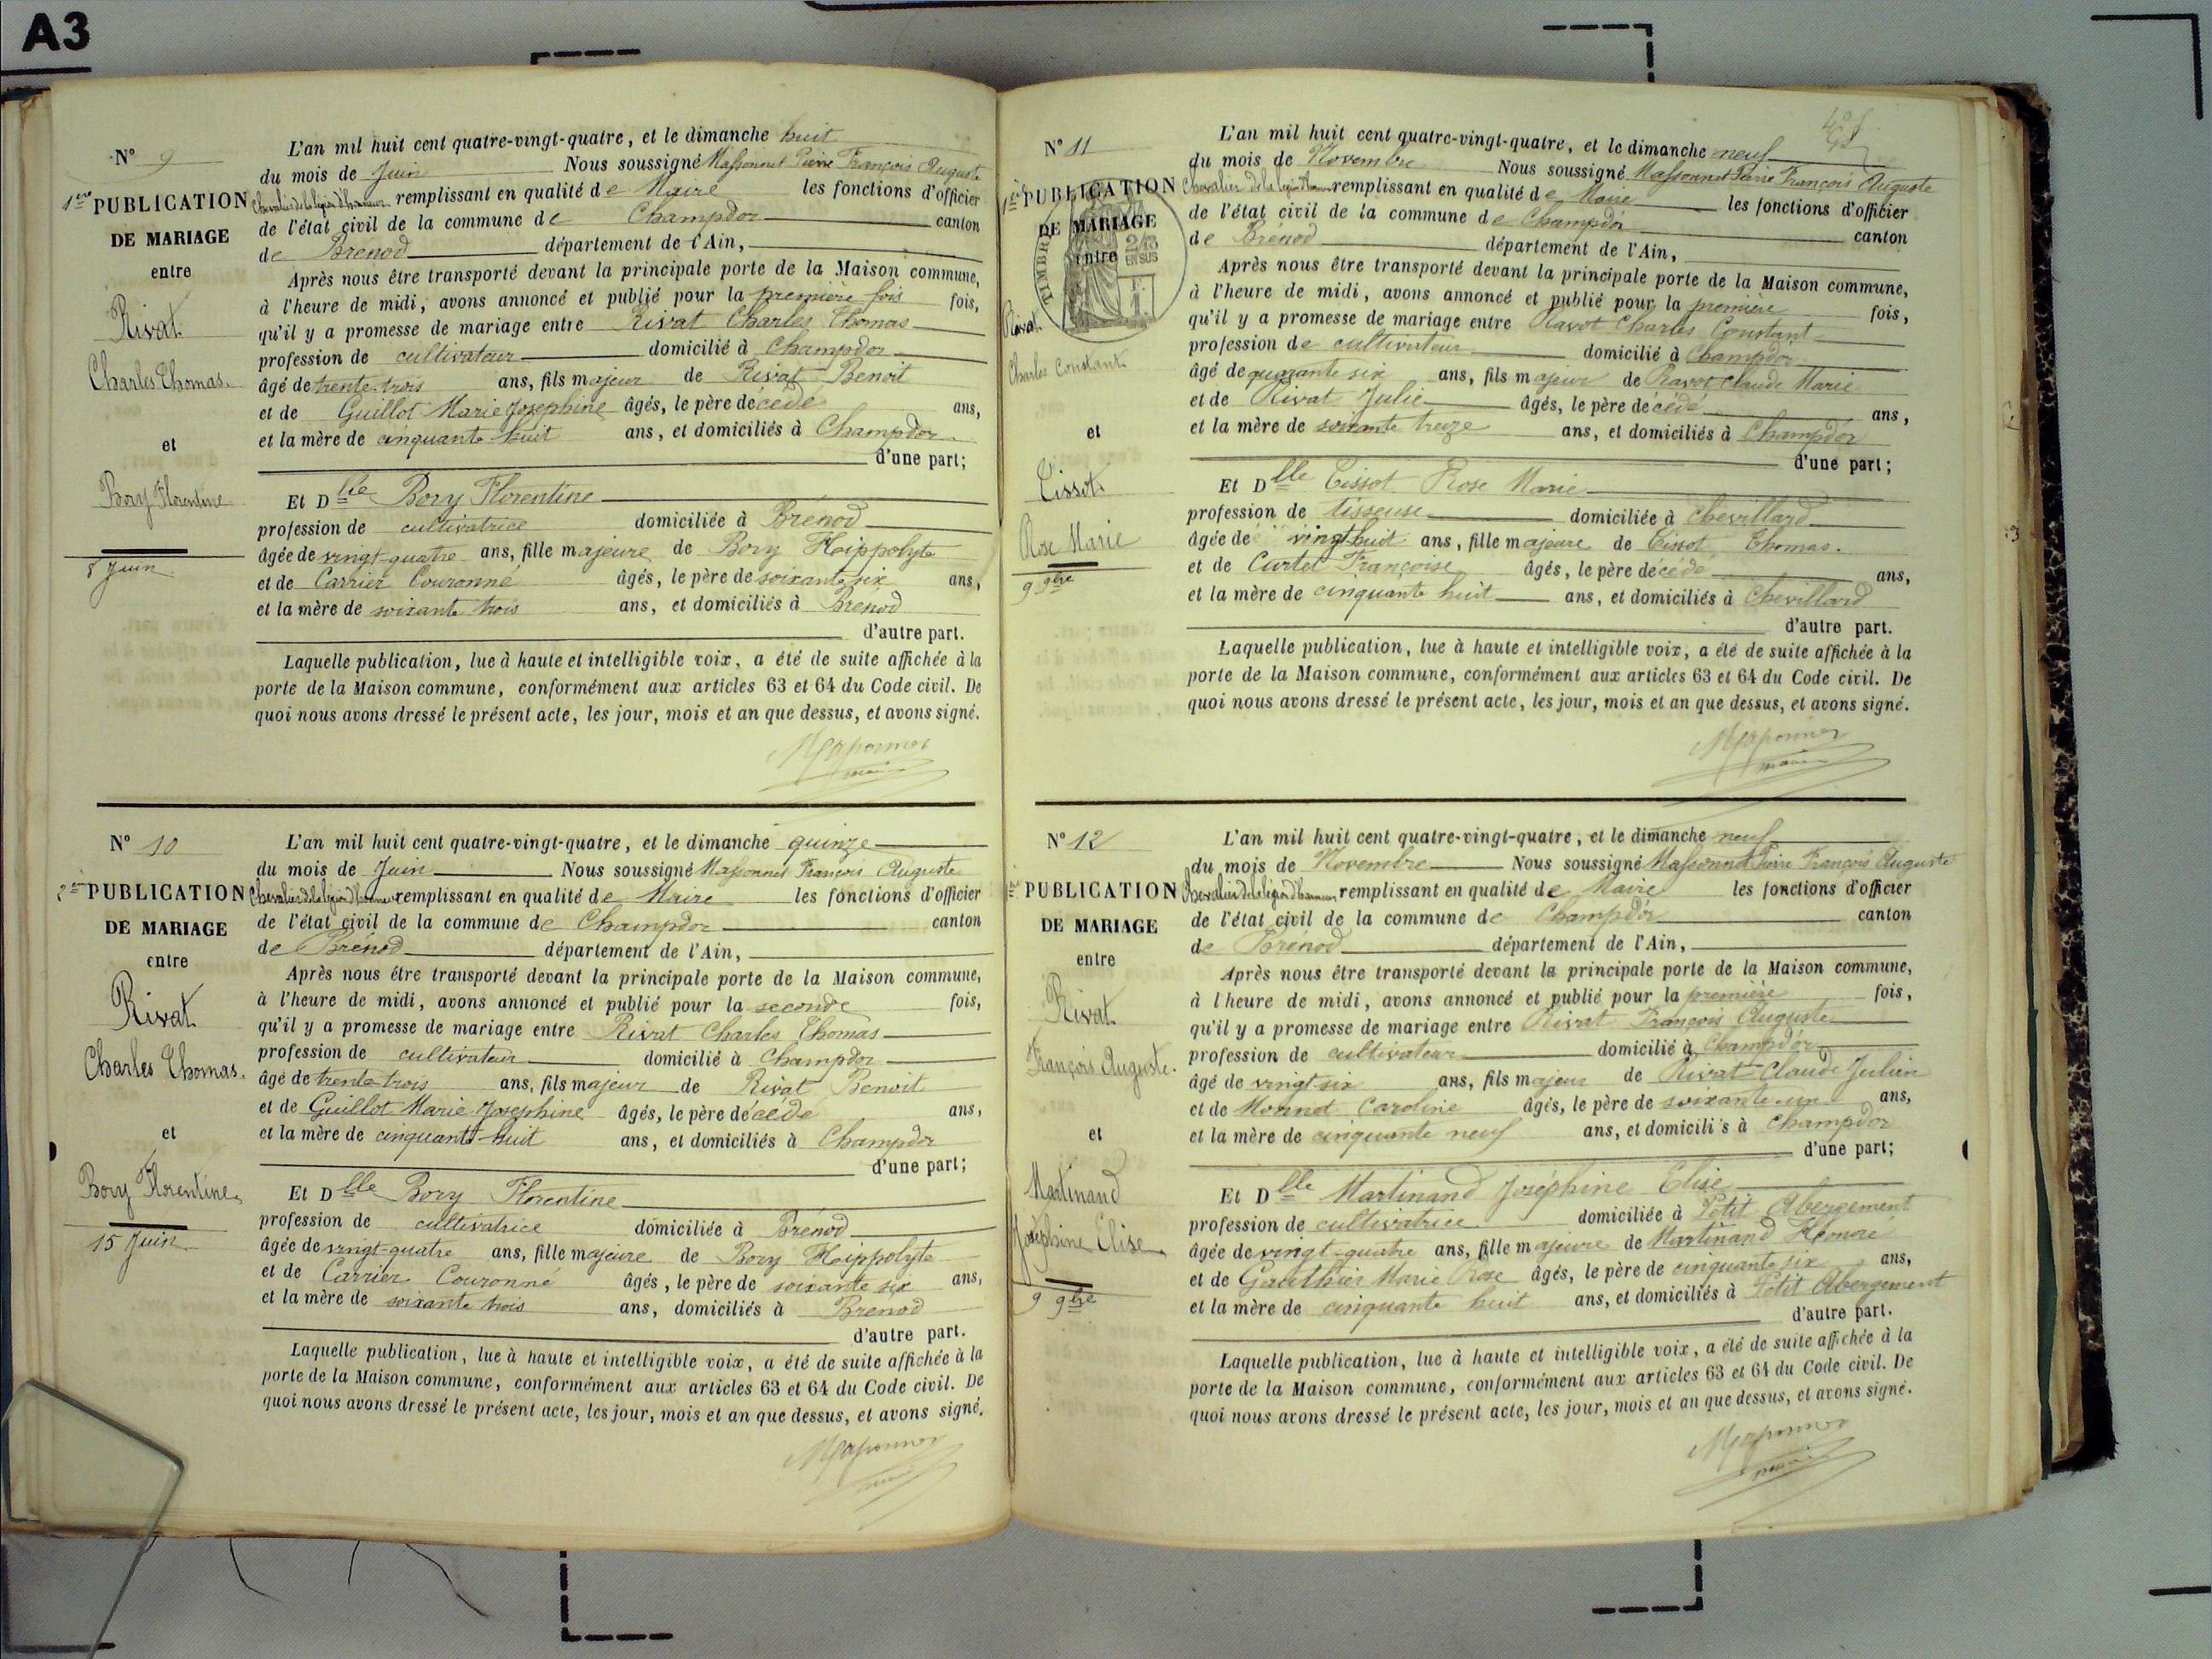 A3
N° 9
1ère PUBLICATION
DE MARIAGE
entre
Rivat
Charles Thomas.
et
Bory Florentine
8 Juin
L'an mil huit cent quatre-vingt-quatre, et le dimanche huit
du mois de Juin Nous soussigné Massonnet Pierre François Auguste
Chevalier de la légion d'honneur remplissant en qualité de Maire les fonctions d'officier
de l'état civil de la commune de Champdor canton
de Brenod département de l'Ain,
Après nous être transporté devant la principale porte de la Maison commune,
à l'heure de midi, avons annoncé et publié pour la première fois fois,
qu'il y a promesse de mariage entre Rivat Charles Thomas
profession de cultivateur domicilié à Champdor
âgé de trente-trois ans, fils majeur de Rivat Benoit
et de Guillot Marie Josephine âgés, le père décédé ans,
et la mère de cinquante-huit ans, et domiciliés à Champdor
d'une part;
Et Dlle Bory Florentine
profession de cultivatrice domiciliée à Brénod
âgée de vingt-quatre ans, fille majeure de Bory Hippolyte
et de Carrier Couronne âgés, le père de soixante six ans,
et la mère de soixante trois ans, et domiciliés à Brénod
d'autre part.
Laquelle publication, lue à haute et intelligible voix, a été de suite affichée à la
porte de la Maison commune, conformément aux articles 63 et 64 du Code civil. De
quoi nous avons dressé le présent acte, les jour, mois et an que dessus, et avons signé.
Massonnet
maire
N° 10
2e PUBLICATION
DE MARIAGE
entre
Rivat
Charles Thomas.
et
Bory Florentine
15 Juin
L'an mil huit cent quatre-vingt-quatre, et le dimanche quinze
du mois de Juin Nous soussigné Massonnet François Auguste
Chevalier de la légion d'honneur remplissant en qualité de Maire les fonctions d'officier
de l'état civil de la commune de Champdor canton
de Brénod département de l'Ain,
Après nous être transporté devant la principale porte de la Maison commune,
à l'heure de midi, avons annoncé et publié pour la seconde fois,
qu'il y a promesse de mariage entre Rivat Charles Thomas
profession de cultivateur domicilié à Champdor
âgé de trente-trois ans, fils majeur de Rivat Benoit
et de Guillot Marie Josephine âgés, le père décédé ans,
et la mère de cinquante-huit ans, et domiciliés à Champdor
d'une part;
Et Dlle Bory Florentine
profession de cultivatrice domiciliée à Brénod
âgée de vingt-quatre ans, fille majeure de Bory Hippolyte
et de Carrier Couronné âgés, le père de soixante six ans,
et la mère de soixante trois ans, domiciliés à Brenod
d'autre part.
Laquelle publication, lue à haute et intelligible voix, a été de suite affichée à la
porte de la Maison commune, conformément aux articles 63 et 64 du Code civil. De
quoi nous avons dressé le présent acte, les jour, mois et an que dessus, et avons signé.
Massonnet
maire
N° 11
1ère PUBLICATION
DE MARIAGE
entre
TIMBRE
2/10
EN SUS
Ravot
Charles Constant
et
Tissot
Rose Marie
9 9bre
L'an mil huit cent quatre-vingt-quatre, et le dimanche neuf
du mois de Novembre Nous soussigné Massonnet Pierre François Auguste
Chevalier de la légion d'honneur remplissant en qualité de Maire les fonctions d'officier
de l'état civil de la commune de Champdor canton
de Brénod département de l'Ain,
Après nous être transporté devant la principale porte de la Maison commune,
à l'heure de midi, avons annoncé et publié pour la première fois,
qu'il y a promesse de mariage entre Ravot Charles Constant
profession de cultivateur domicilié à Champdor
âgé de quarante six ans, fils majeur de Ravot Claude Marie
et de Rivat Julie âgés, le père décédé ans,
et la mère de soixante treize ans, et domiciliés à Champdor
d'une part;
Et Dlle Tissot Rose Marie
profession de tisseuse domiciliée à Chevillard
âgée de vingt huit ans, fille majeure de Tissot Thomas.
et de Curtet Françoise âgés, le père décédé ans,
et la mère de cinquante huit ans, et domiciliés à Chevillard
d'autre part.
Laquelle publication, lue à haute et intelligible voix, a été de suite affichée à la
porte de la Maison commune, conformément aux articles 63 et 64 du Code civil. De
quoi nous avons dressé le présent acte, les jour, mois et an que dessus, et avons signé.
Massonnet
maire
N° 12
1ère PUBLICATION
DE MARIAGE
entre
Rivat
François Auguste.
et
Martinand
Joséphine Elise
9 9bre
L'an mil huit cent quatre-vingt-quatre, et le dimanche neuf
du mois de Novembre Nous soussigné Massonnet Pierre François Auguste
Chevalier de la légion d'honneur remplissant en qualité de Maire les fonctions d'officier
de l'état civil de la commune de Champdor canton
de Brénod département de l'Ain,
Après nous être transporté devant la principale porte de la Maison commune,
à l'heure de midi, avons annoncé et publié pour la première fois,
qu'il y a promesse de mariage entre Rivat François Auguste
profession de cultivateur domicilié à Champdor
âgé de vingt six ans, fils majeur de Rivat Claude Julien
et de Monnet Caroline âgés, le père de soixante un ans,
et la mère de cinquante neuf ans, et domiciliés à Champdor
d'une part;
Et Dlle Martinand Joséphine Elise
profession de cultivatrice domiciliée à Petit Abergement
âgée de vingt-quatre ans, fille majeure de Martinand Honoré
et de Gauthier Marie Rose âgés, le père de cinquante six ans,
et la mère de cinquante huit ans, et domiciliés à Petit Abergement
d'autre part.
Laquelle publication, lue à haute et intelligible voix, a été de suite affichée à la
porte de la Maison commune, conformément aux articles 63 et 64 du Code civil. De
quoi nous avons dressé le présent acte, les jour, mois et an que dessus, et avons signé.
Massonnet
maire